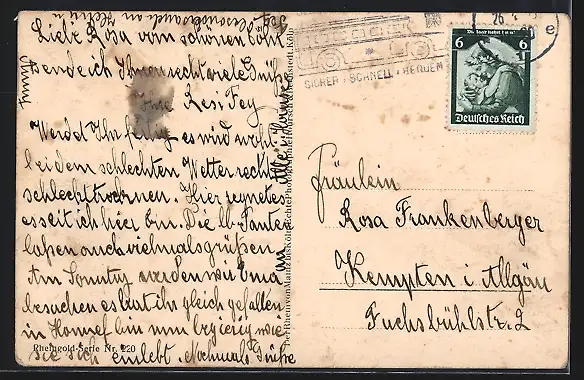 Liebe Rosa vom schönen Cöln
sende ich Ihnen recht viele Grüße
Ihre Resi Fey
Werdet Ihr fertig es wird wohl
bei dem schlechten Wetter recht
schlecht trocknen. Hier regnet es
es seit ich hier bin. Die lb. Tante
laßen auch vielmals grüßen
Am Sonntag werden wir Erna
besuchen es hat ihr gleich gefallen
in Honnef bin nun begierig wie
sie sich einlebt. Nochmals Grüße
Rheingold-Serie Nr. 220
Der Rhein von Mainz bis Köln
SICHER · SCHNELL · BEQUEM
26
e
6 6
Deutsches Reich
Fräulein
Rosa Frankenberger
Kempten i. Allgäu
Fuchsbühlstr. 2